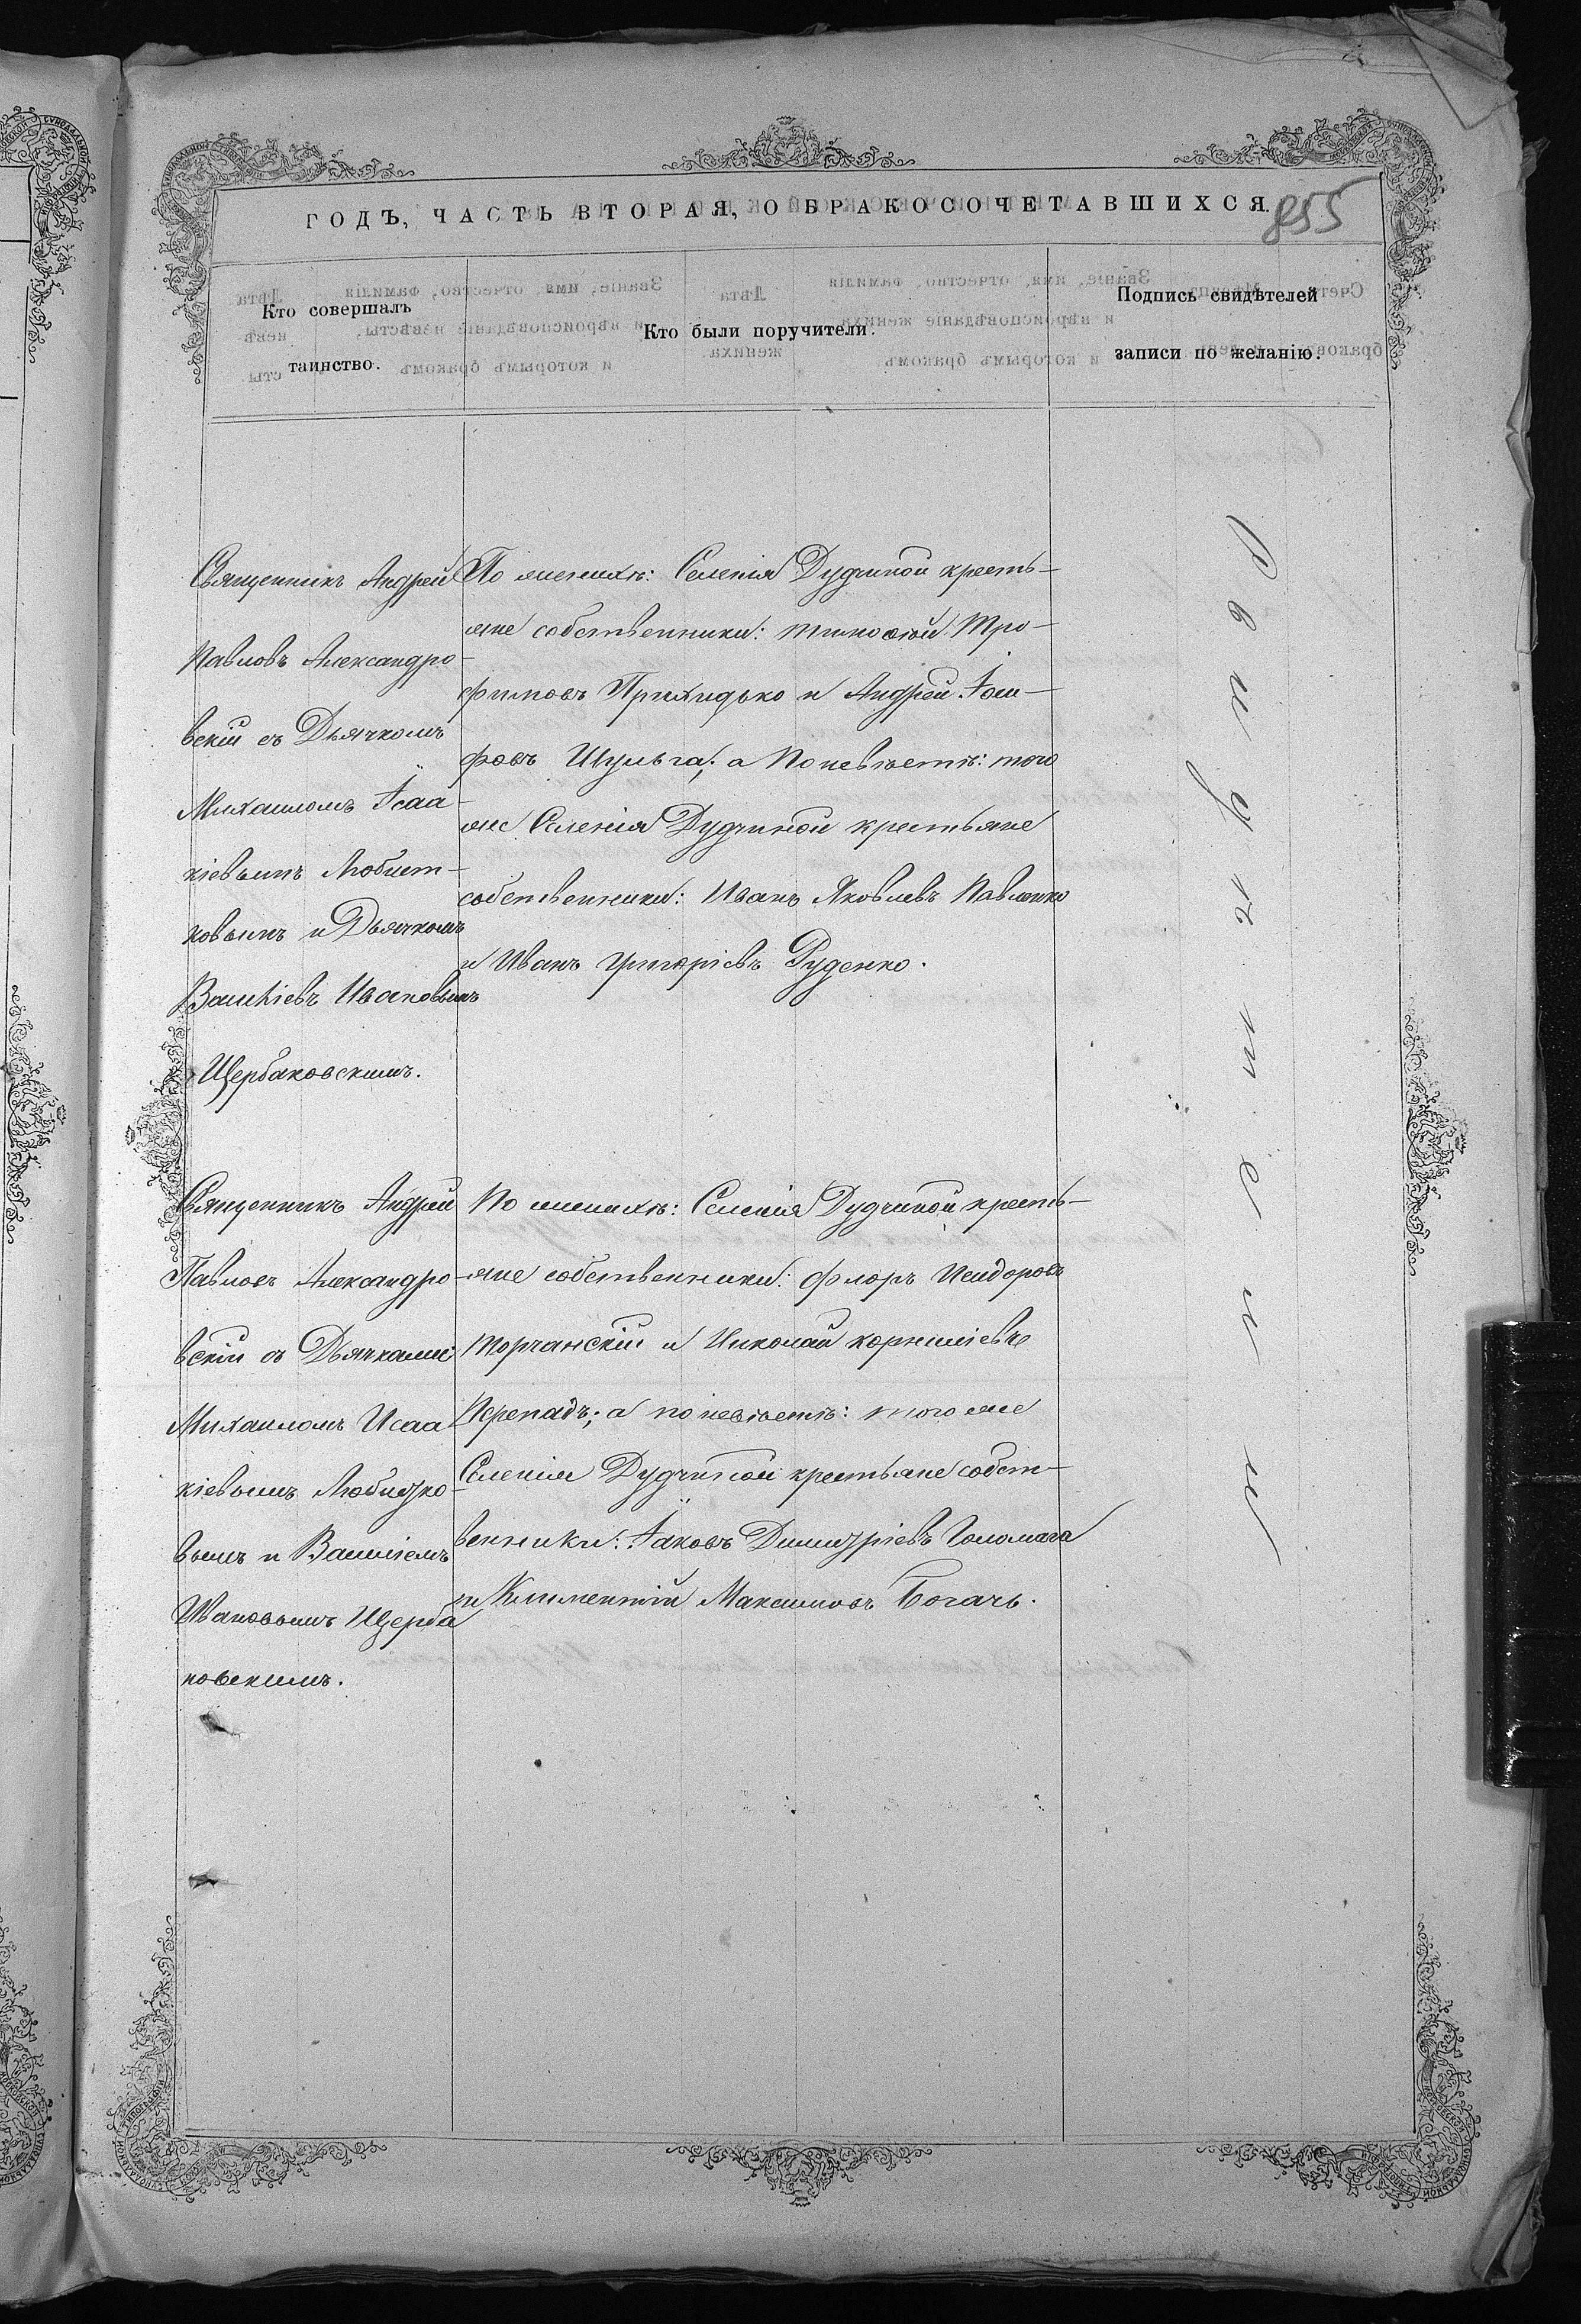 ГОДЪ, ЧАСТЬ ВТОРАЯ, О БРАКОСОЧЕТАВШИХСЯ.
855
Кто совершалъ
таинство.
Кто были поручители.
Подпись свидѣтелей
записи по желанію.
Священникъ Андрей
Павловъ Александро-
вскій съ Дьячкомъ
Михаиломъ Ісаа-
кіевымъ Любит-
ковымъ и Дьячкомъ
Ивановымъ
Щербаковскимъ.
По женихѣ: Селенія Дудчиной кресть-
яне собственники: Тимофей Тро-
фимовъ Прихидько и Андрей
Шульга; а По невѣстѣ: того
же Селенія Дудчиной крестьяне
собственники: Иванъ Яковлевъ Павленко
и Иванъ Григоріевъ Руденко.
Священникъ Андрей
Павловъ Александро-
вскій съ Дьячками
Михаиломъ Исаа
кіевымъ Любицко-
вымъ и Василіемъ
Ивановымъ Щерба
ковскимъ.
По женихѣ: Селенія Дудчиной кресть-
яне собственники: Флоръ Исидоровъ
Торчанскій и Николай Корниліевъ
Перепадъ; а по невѣстѣ: того же
Селенія Дудчиной крестьяне собст-
венники: Іаковъ Димитріевъ
и Климентій Максимовъ Богачъ.